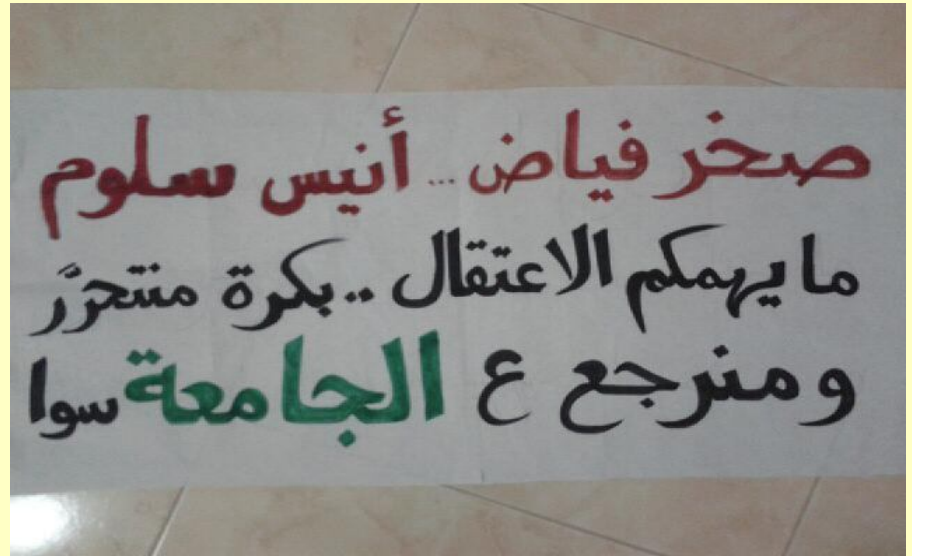 صخر فياض ... أنيس سلوم
ما يهمكم الاعتقال .. بكرة منتحرّر
ومنرجع ع الجامعة سوا